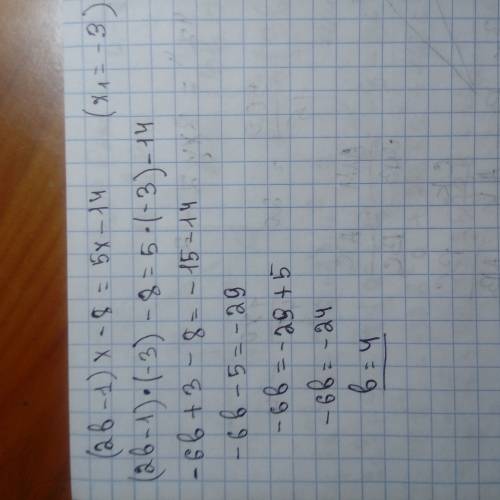 (2в-1)x-8=5x-14 (x₁=-3)
(2в-1)·(-3)-8=5·(-3)-14
-6в+3-8=-15-14
-6в-5=-29
-6в=-29+5
-6в=-24
в=4